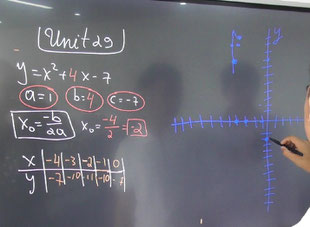 Unit 29
y = x² + 4x - 7
a = 1 b = 4 c = -7
x₀ = -b/2a x₀ = -4/2 = -2
x -4 -3 -2 -1 0
y -7 -10 -11 -10 -7
y